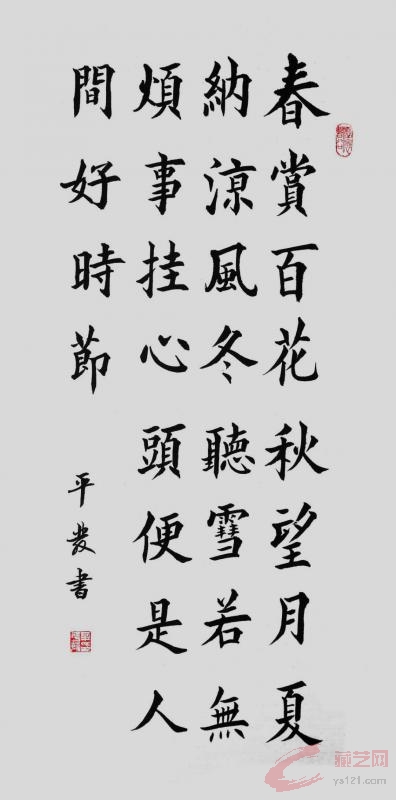 春賞百花秋望月夏
納涼風冬聽䨮若無
煩事挂心頭便是人
間好時節
平 書
藏艺网
ys121.com